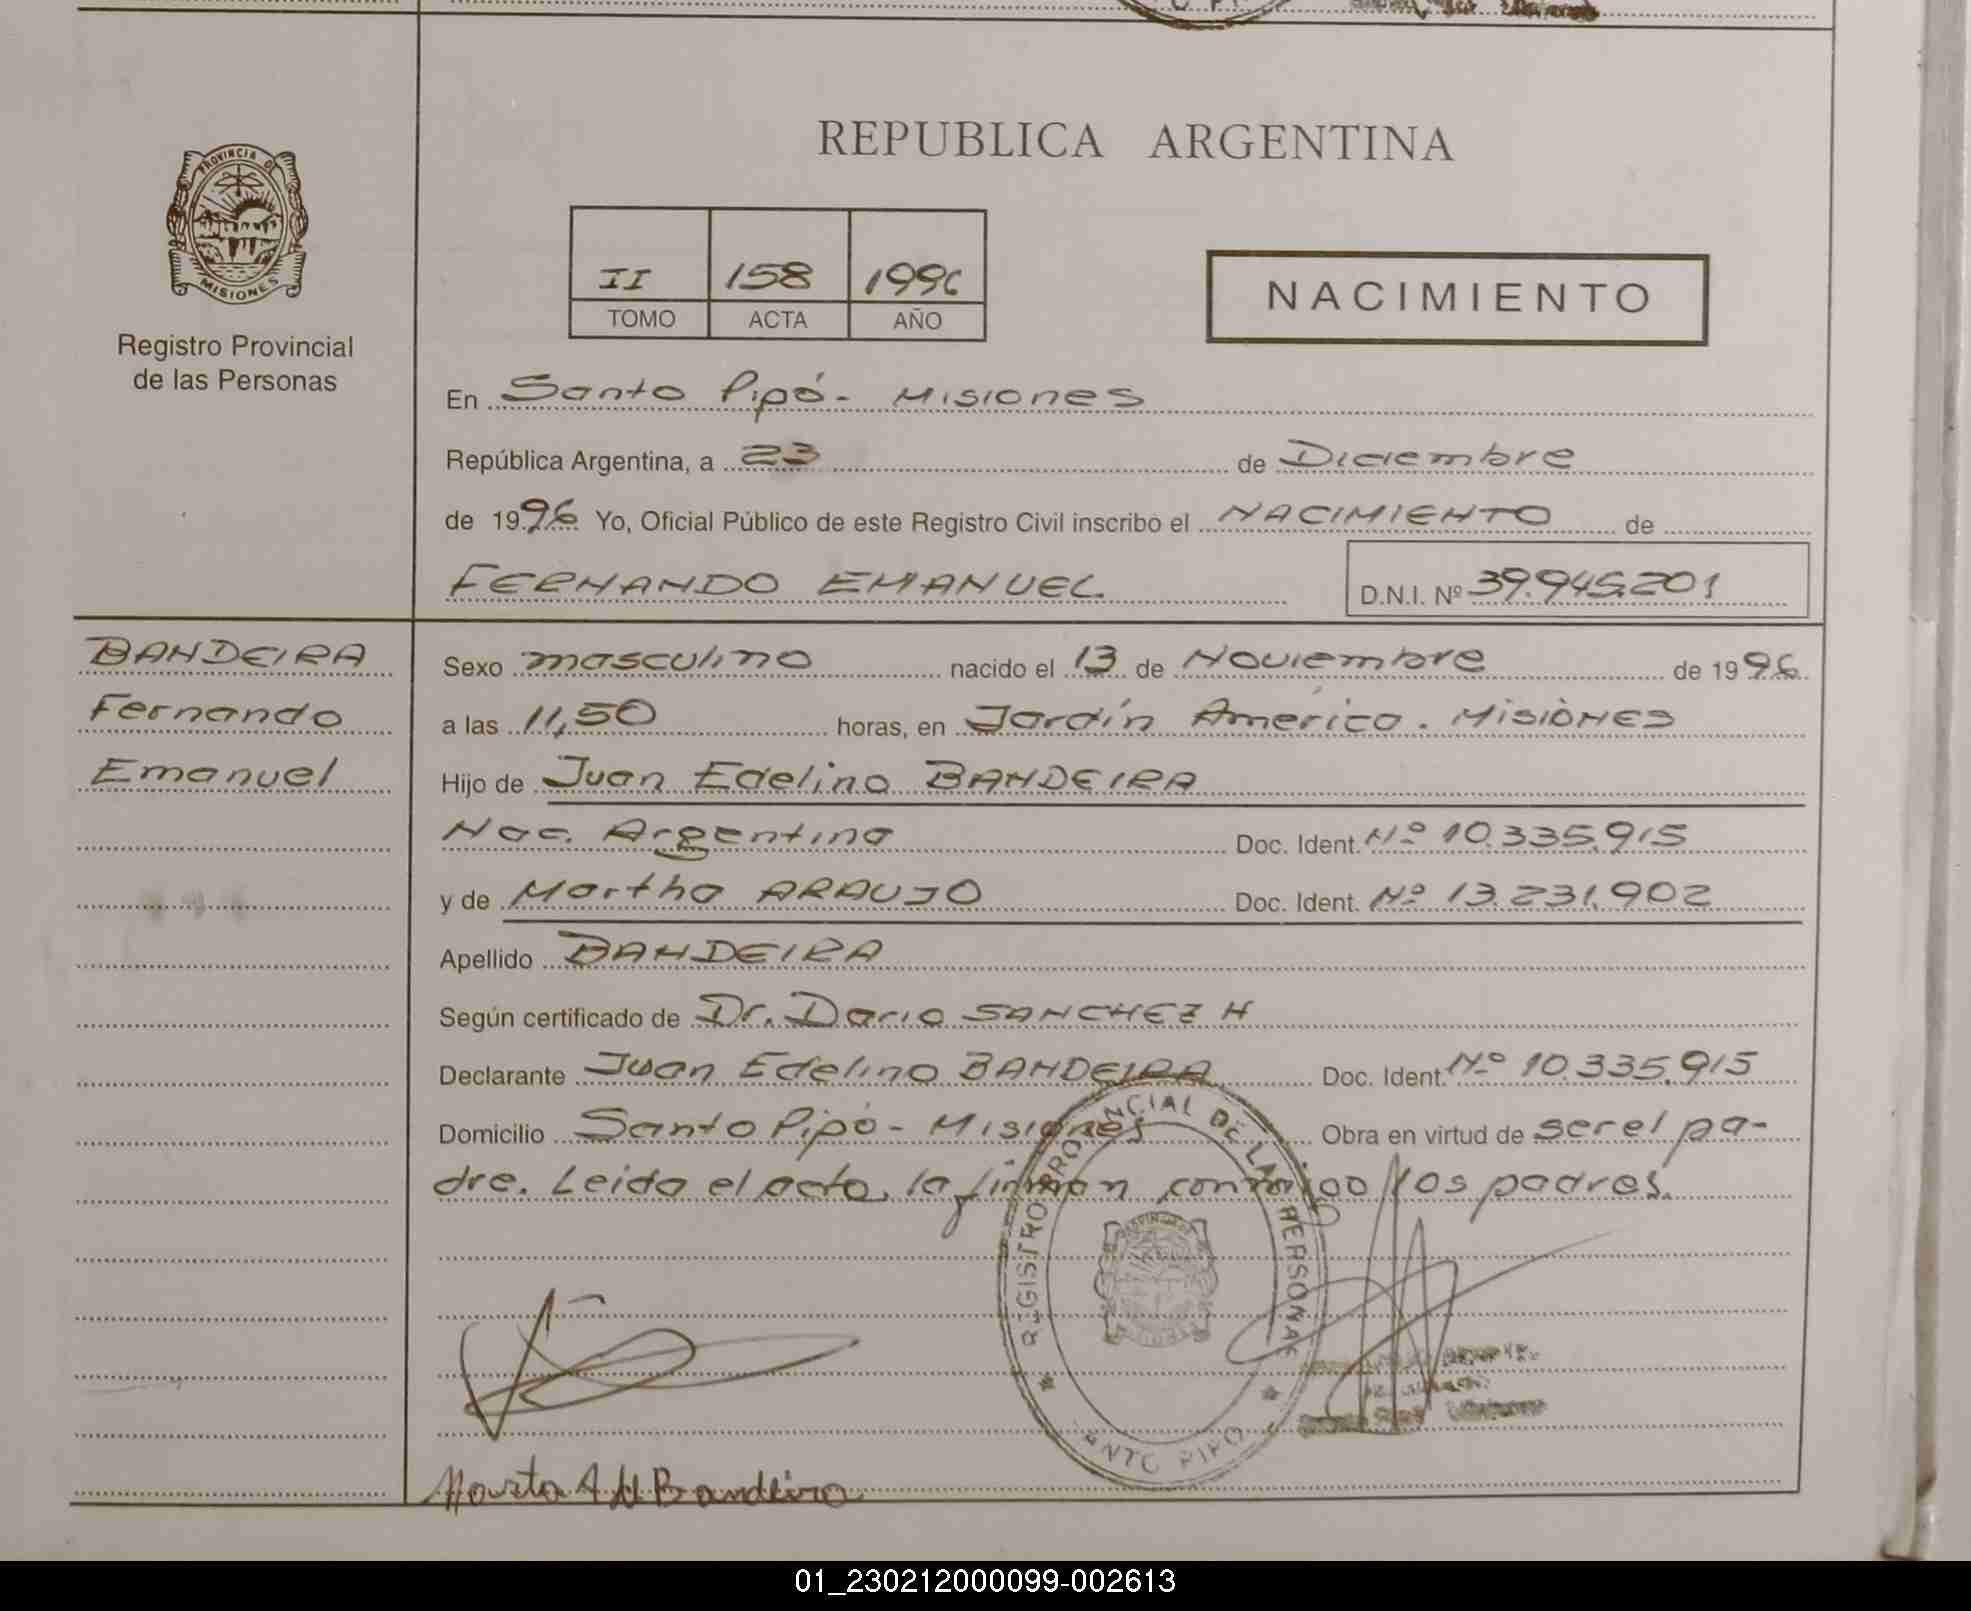 REPUBLICA ARGENTINA
PROVINCIA DE
MISIONES
Registro Provincial
de las Personas
II 158 1996
TOMO ACTA AÑO
NACIMIENTO
En Santo Pipó - Misiones
República Argentina, a 23 de Diciembre
de 1996 Yo, Oficial Público de este Registro Civil inscribo el NACIMIENTO de
FERNANDO EMANUEL D.N.I. Nº 39.945.201
BANDEIRA
Fernando
Emanuel
Sexo masculino nacido el 13 de Noviembre de 1996
a las 11,50 horas, en Jardín América. Misiones
Hijo de Juan Edelino BANDEIRA
Nac. Argentina Doc. Ident. Nº 10.335.915
y de Martha ARAUJO Doc. Ident. Nº 13.231.902
Apellido BANDEIRA
Según certificado de Dr. Dario SANCHEZ H
Declarante Juan Edelino BANDEIRA Doc. Ident. Nº 10.335.915
Domicilio Santo Pipó - Misiones Obra en virtud de ser el pa-
dre. Leida el acta, la firman conmigo los padres.
REGISTRO PROVINCIAL DE LAS PERSONAS
SANTO PIPO
Marta A de Bandeira
01_230212000099-002613